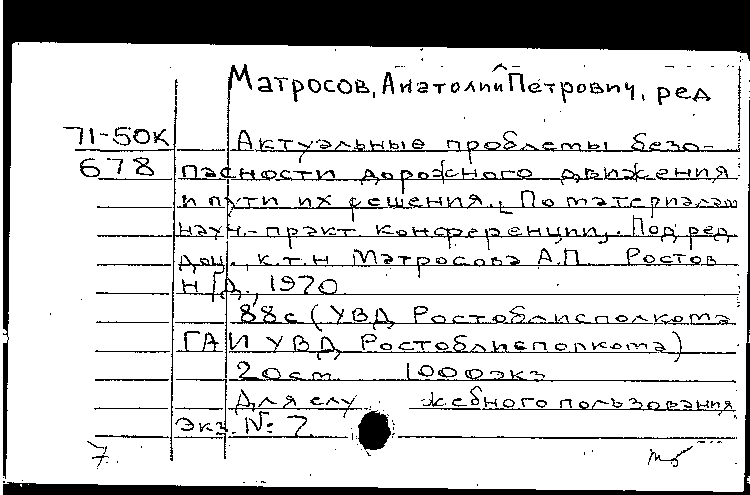 Матросов, Анатолий Петрович, ред
71-50К
678
Актуальные проблемы безо-
пасности дорожного движения
и пути их решения. [По материалам
науч.-практ. конференции]. Под ред
доц., к.т.н Матросова А.П. Ростов
н/Д., 1970
88с (УВД Ростоблисполкома
ГАИ УВД Ростоблисполкома)
20см 1000экз
Для служебного пользования
Экз. № 7
7
мб